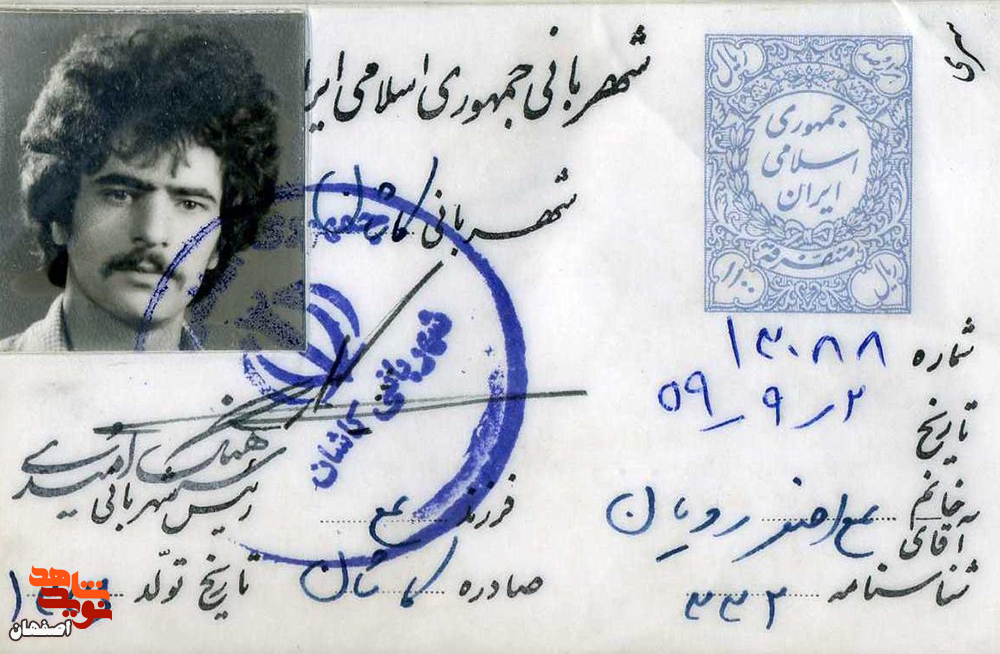 شهربانی جمهوری اسلامی ایران
شهربانی کاشان
جمهوری
اسلامی
ایران
متفرقه
ریال
ریال
شماره ۱۳۰۸۸
تاریخ ۵۹/۹/۲
خانم
به آقای
فرزند
شناسنامه ۳۳۲ صادره کاشان تاریخ تولد
رئیس شهربانی
شهربانی کاشان
نوید شاهد
اصفهان